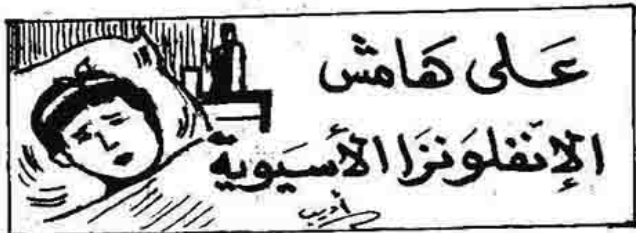 عَلى هَامش
الإنفلوَنزَا الأسيَوية
أديب